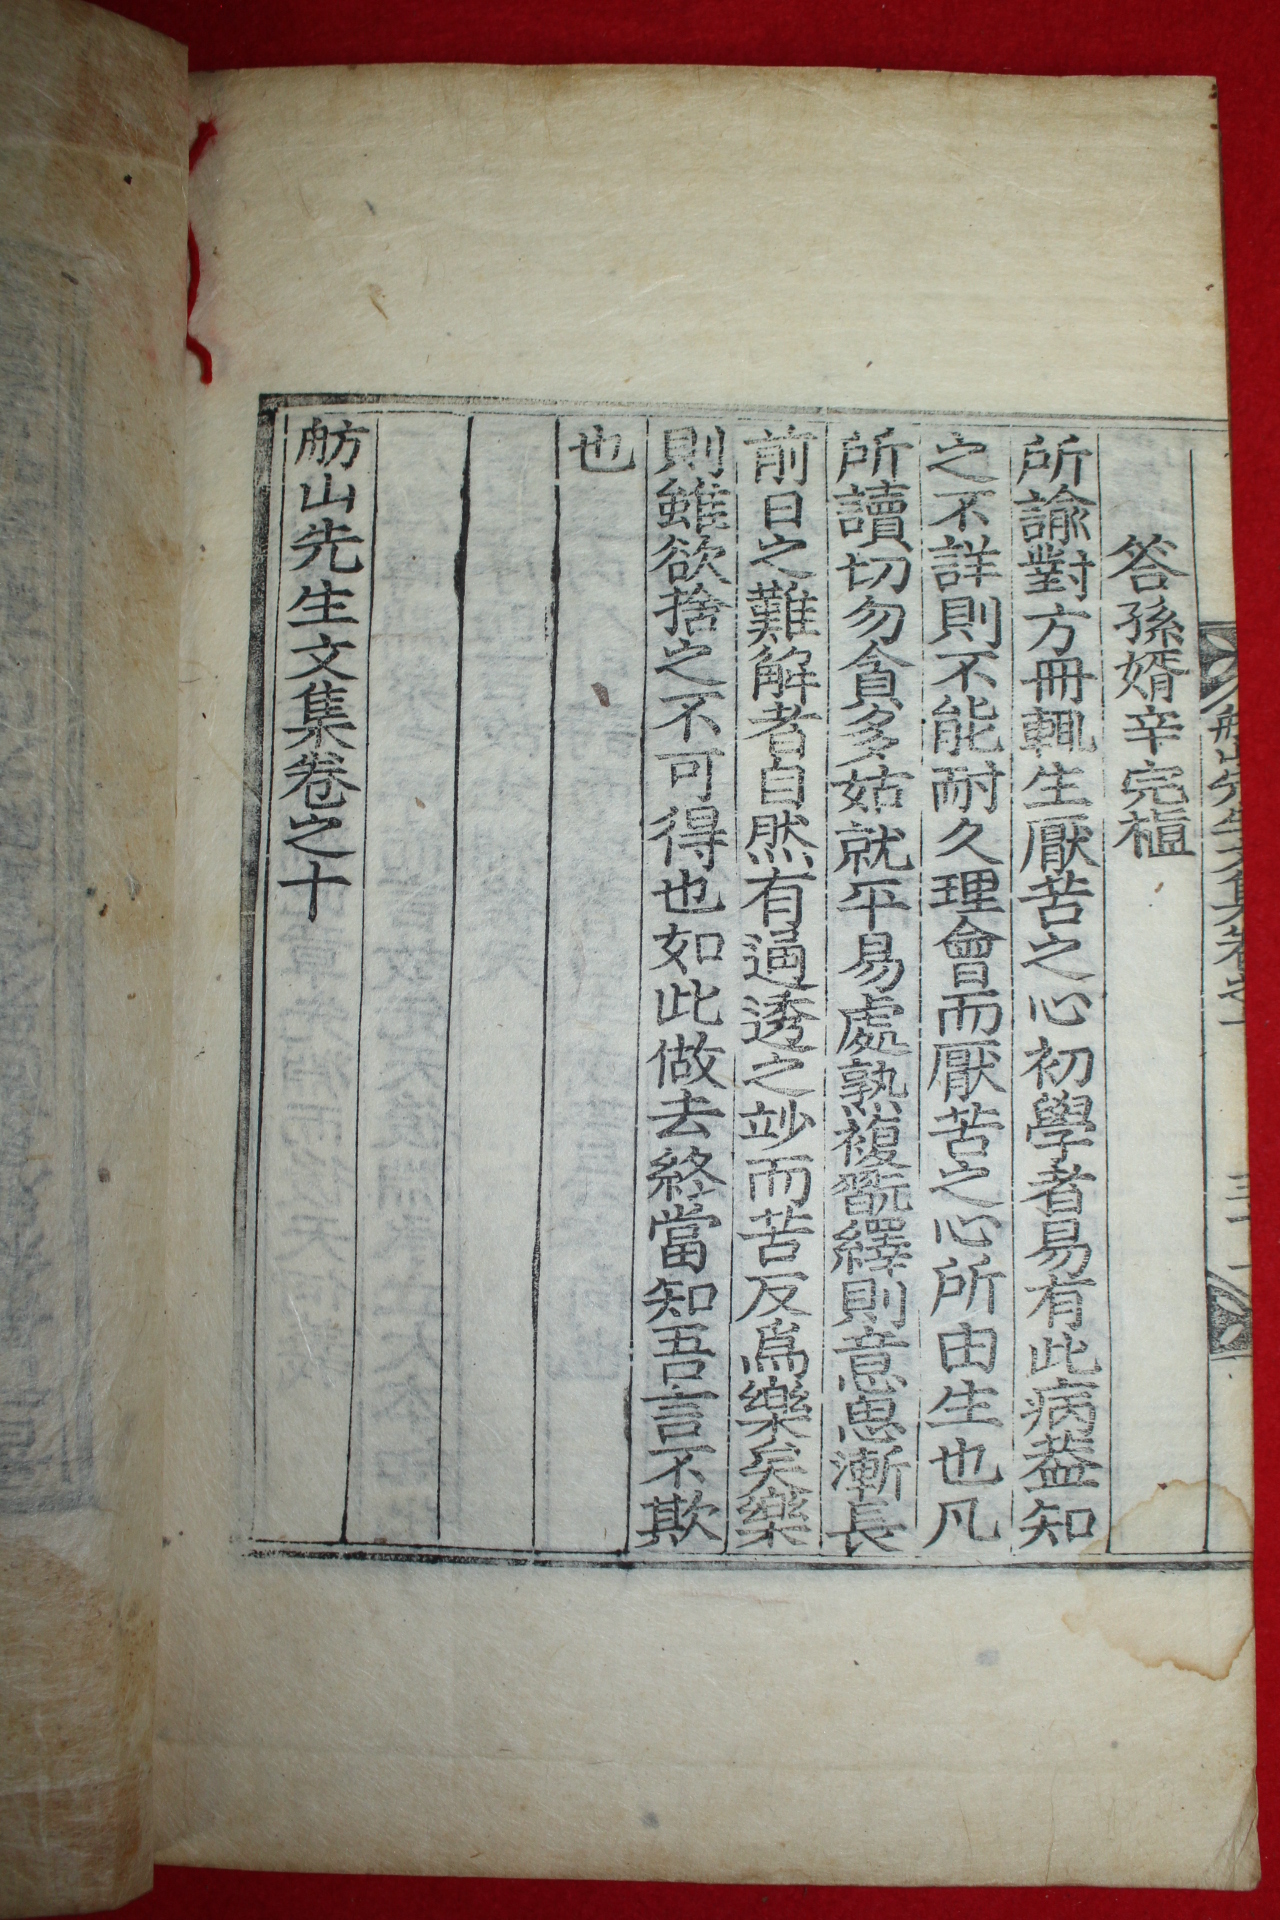 答孫婿辛完樞
所諭對方冊輒生厭苦之心初學者易有此病蓋知
之不詳則不能耐久理會而厭苦之心所由生也凡
所讀切勿貪多姑就平易處熟複翫繹則意思漸長
前日之難解者自然有通透之玅而苦反爲樂矣樂
則雖欲捨之不可得也如此做去終當知吾言不欺
也
舫山先生文集卷之十